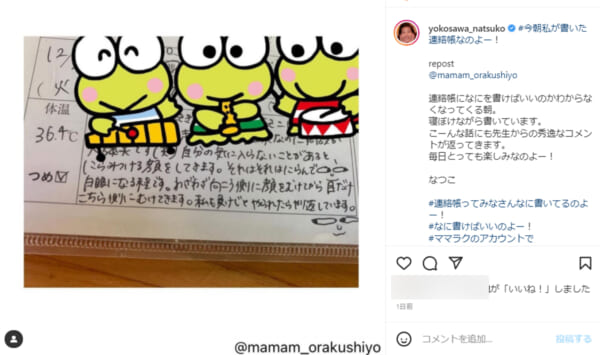 12/
(火
体温
36.4℃
つめ☑
自分の気に入らないことがあると、
にらみつける顔をしてきます。それはそれはにらんで
白眼になる程です。わざわざ向こう側に顔をむけてから目だけ
こちら側にむけてきます。私も負けじとやられたらやり返しています。
@mamam_orakushiyo
yokosawa_natsuko #今朝私が書いた
連絡帳なのよー！
repost
@mamam_orakushiyo
連絡帳になにを書けばいいのかわからな
くなってくる朝。
寝ぼけながら書いています。
こーんな話にも先生からの秀逸なコメント
が返ってきます。
毎日とっても楽しみなのよー！
なつこ
#連絡帳ってみなさんなに書いてるのよ
ー！
#なに書けばいいのよー！
#ママラクのアカウントで
が「いいね！」しました
1日前
コメントを追加...